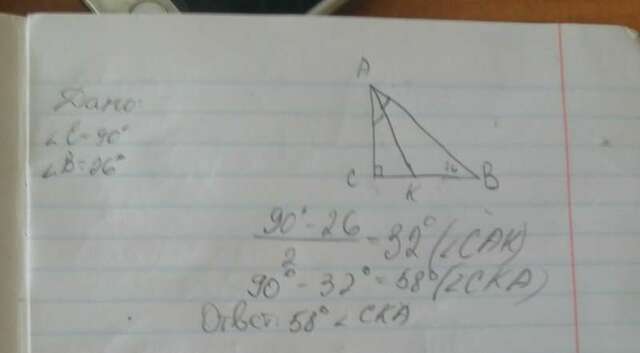 Дано:
∠C=90°
∠B=26°
A
C
K
26
B
90°-26
2
=32° (∠CAK)
90°-32°=58° (∠CKA)
Ответ: 58° ∠CKA